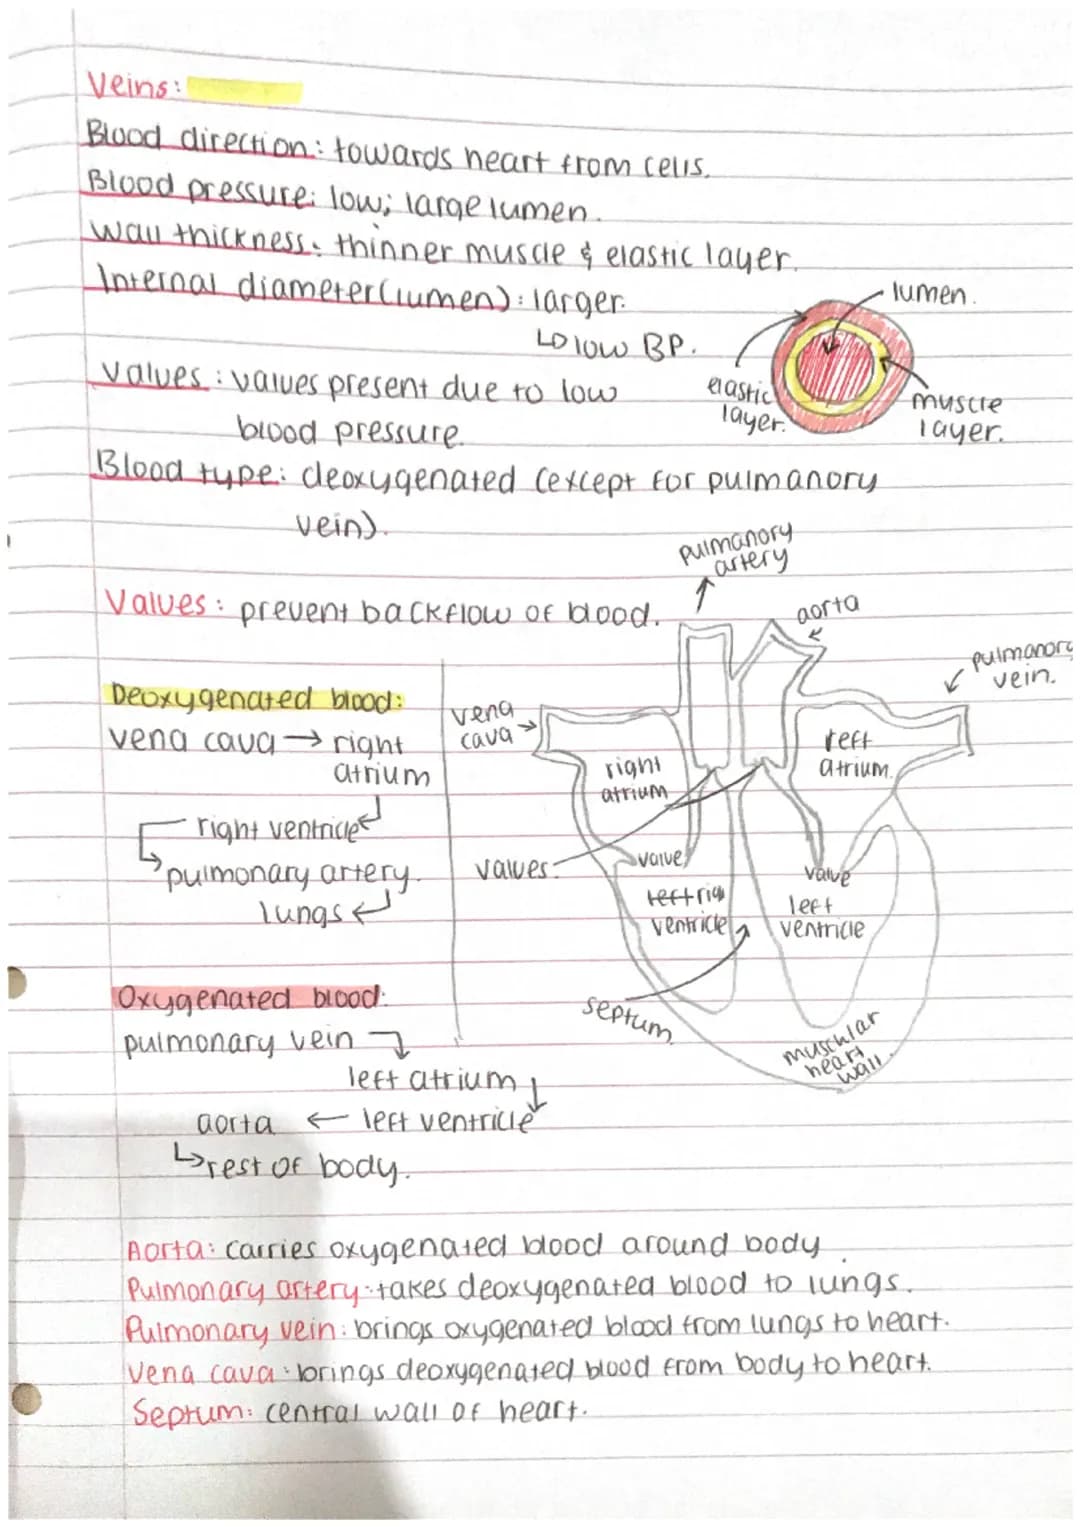 Veins:
Blood direction: towards heart from cells.
Blood pressure: low; large lumen.
Wall thickness: thinner muscle & elastic layer.
Internal diameter (lumen): larger.
↳ low BP.
lumen.
elastic layer.
muscle layer.
Valves: valves present due to low
blood pressure.
Blood type: deoxygenated (except for pulmanory
vein).
Valves: prevent backflow of blood.
pulmanory
artery
aorta
pulmanory
vein.
vena
cava →
right
atrium
left
atrium.
valves.
valve
valve
left rig
ventricle
left
ventricle
septum
muscular
heart
wall.
Deoxygenated blood:
vena cava → right
atrium
right ventricle
pulmonary artery.
lungs
Oxygenated blood:
pulmonary vein
left atrium
aorta ← left ventricle
↳ rest of body.
Aorta: carries oxygenated blood around body.
Pulmonary artery: takes deoxygenated blood to lungs.
Pulmonary vein: brings oxygenated blood from lungs to heart.
Vena cava: brings deoxygenated blood from body to heart.
Septum: central wall of heart.